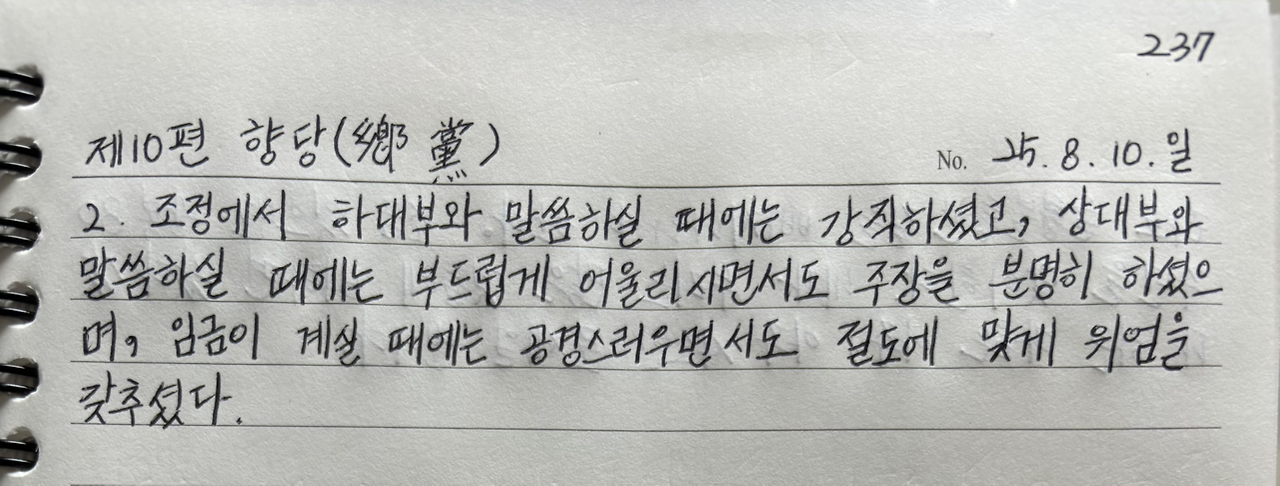 237
제10편 향당(鄕黨)
No. 25. 8. 10. 일
2. 조정에서 하대부와 말씀하실 때에는 강직하셨고, 상대부와
말씀하실 때에는 부드럽게 어울리시면서도 주장을 분명히 하셨으
며, 임금이 계실 때에는 공경스러우면서도 절도에 맞게 위엄을
갖추셨다.